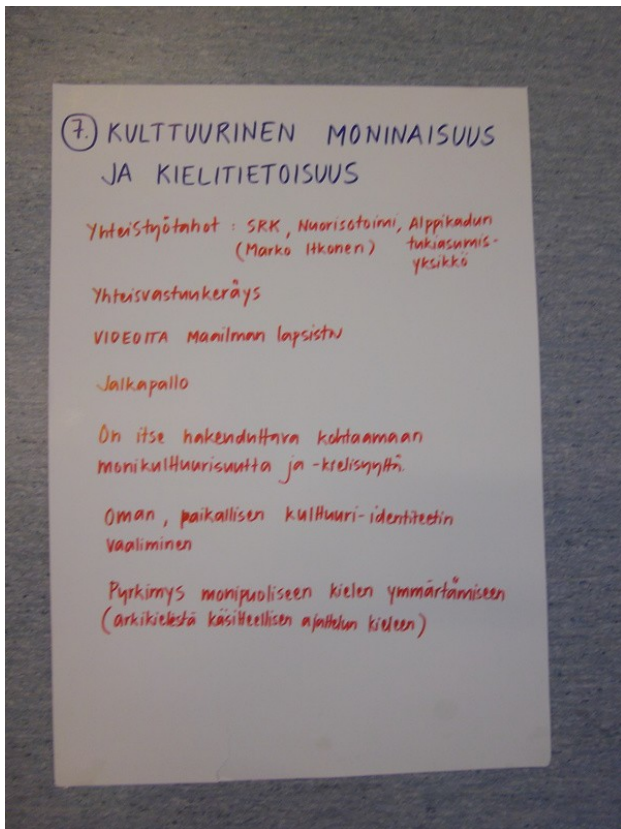 7. KULTTUURINEN MONINAISUUS
JA KIELITIETOISUUS
Yhteistyötahot : SRK, Nuorisotoimi, Alppikadun
(Marko Itkonen) tukiasumis-
yksikkö
Yhteisvastuunkeräys
VIDEOITA Maailman lapsista
Jalkapallo
On itse hakeuduttava kohtaamaan
monikulttuurisuutta ja -kielisyyttä.
Oman, paikallisen kulttuuri-identiteetin
vaaliminen
Pyrkimys monipuoliseen kielen ymmärtämiseen
(arkikielestä käsitteellisen ajattelun kieleen)